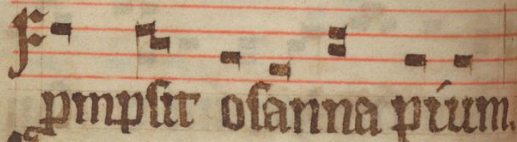 ꝓmpſit oſanna pium.